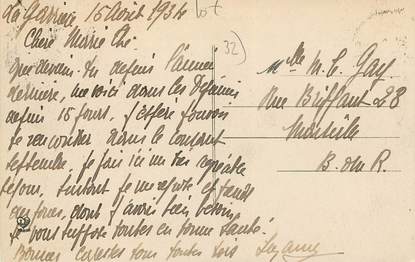 La Garrière 15 Août 1934
lot
32)
Chère Marie Thé.
que deviens-tu depuis l'année
dernière, me voici dans les
depuis 15 jours. J'espère pouvoir
te rencontrer dans le courant
septembre, je fais ici un très agréable
séjour, surtout je me repose et prends
des forces, dont j'avais bien besoin
je vous suppose toutes en bonne santé.
Bonnes caresses pour toutes trois Suzanne
Mlle M. C. Gay
Rue Briffaut 28
Marseille
B. du R.